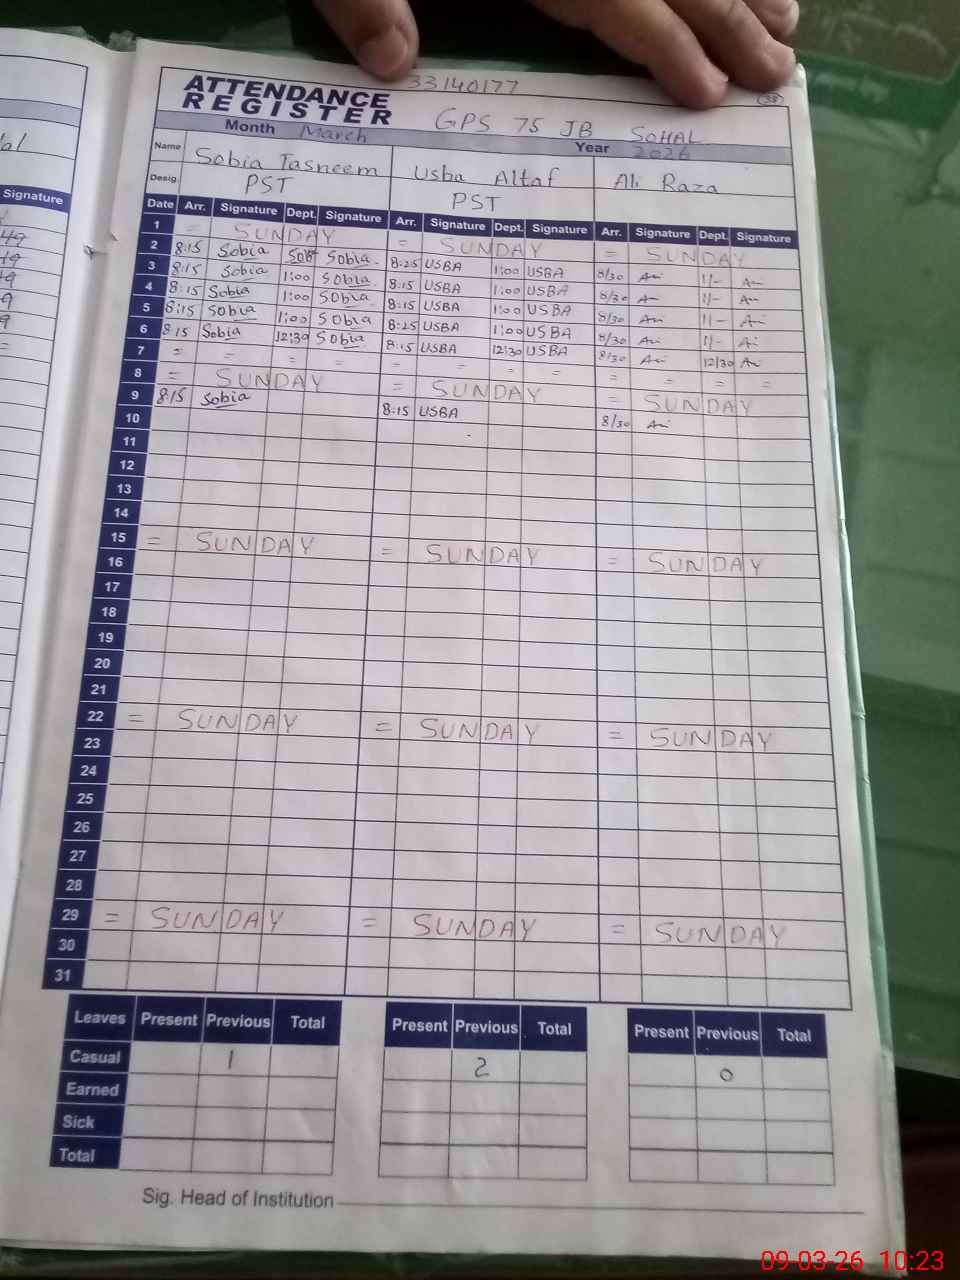 33140177
38
ATTENDANCE
REGISTER
GPS 75 JB SOHAL
Month March Year 2026
Name Sobia Tasneem Usba Altaf Ali Raza
Desig. PST PST
Date Arr. Signature Dept. Signature Arr. Signature Dept. Signature Arr. Signature Dept. Signature
1 = SUNDAY = SUNDAY = SUNDAY
2 8:15 Sobia Sobia 8:25 USBA 1:00 USBA 8/30 Ali 1/- Ali
3 8:15 Sobia 1:00 Sobia 8:15 USBA 1:00 USBA 8/30 Ali 1/- Ali
4 8:15 Sobia 1:00 Sobia 8:15 USBA 1:00 USBA 8/30 Ali 1/- Ali
5 8:15 Sobia 1:00 Sobia 8:25 USBA 1:00 USBA 8/30 Ali 1/- Ali
6 8:15 Sobia 12:30 Sobia 8:15 USBA 12:30 USBA 8/30 Ali 12/30 Ali
7 = = = = = = = = = = = =
8 = SUNDAY = SUNDAY = SUNDAY
9 8:15 Sobia 8:15 USBA 8/30 Ali
10
11
12
13
14
15 = SUNDAY = SUNDAY = SUNDAY
16
17
18
19
20
21
22 = SUNDAY = SUNDAY = SUNDAY
23
24
25
26
27
28
29 = SUNDAY = SUNDAY = SUNDAY
30
31
Leaves Present Previous Total Present Previous Total Present Previous Total
Casual 1 2 0
Earned
Sick
Total
Sig. Head of Institution
Signature
09-03-26 10:23